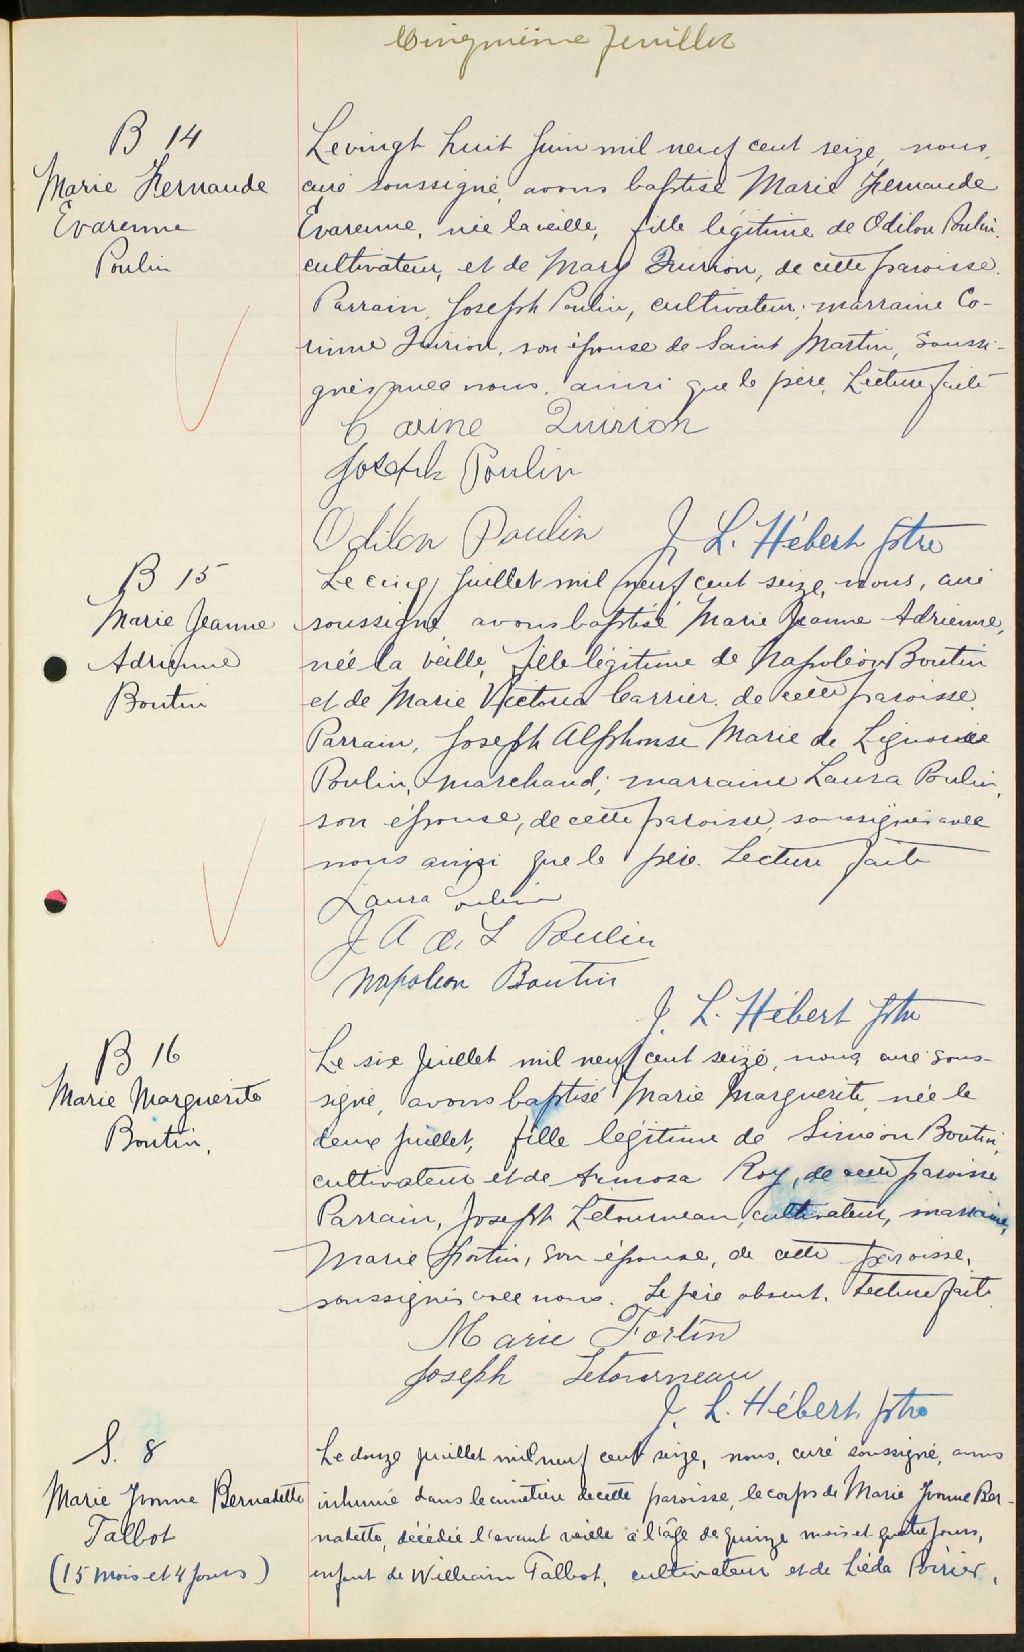 Cinquième feuillet
B 14
Marie Fernande
Évarenne
Poulin
Le vingt huit juin mil neuf cent seize, nous,
curé soussigné, avons baptisé Marie Fernande
Évarenne, née la veille, fille légitime de Odilon Poulin,
cultivateur, et de Mary Quirion, de cette paroisse.
Parrain, Joseph Poulin, cultivateur; marraine Co-
rinne Quirion, son épouse de Saint Martin, soussi-
gnés avec nous, ainsi que le père. Lecture faite
Corine Quirion
Joseph Poulin
Odilon Poulin J. L. Hébert ptre
B 15
Marie Jeanne
Adrienne
Boutin
Le cinq juillet mil neuf cent seize, nous, curé
soussigné, avons baptisé Marie Jeanne Adrienne,
née la veille, fille légitime de Napoléon Boutin
et de Marie Victoria Carrier de cette paroisse.
Parrain, Joseph Alphonse Marie de Liguorie
Poulin, marchand; marraine Laura Poulin,
son épouse, de cette paroisse, soussignés avec
nous ainsi que le père. Lecture faite
Laura Poulin
J A de L Poulin
Napoleon Boutin
J. L. Hébert ptre
B 16
Marie Marguerite
Boutin.
Le six juillet mil neuf cent seize, nous, curé sous-
signé, avons baptisé Marie Marguerite, née le
deux juillet, fille légitime de Siméon Boutin,
cultivateur et de Armosa Roy, de cette paroisse
Parrain, Joseph Létourneau, cultivateur, marraine,
Marie Fortin, son épouse, de cette paroisse,
soussignés avec nous. Le père absent. Lecture faite.
Marie Fortin
Joseph Letourneau
J. L. Hébert, ptre
S. 8
Marie Yvonne Bernadette
Talbot
(15 mois et 4 jours)
Le douze juillet mil neuf cent seize, nous, curé soussigné, avons
inhumé dans le cimetière de cette paroisse, le corps de Marie Yvonne Ber-
nadette, décédée l'avant veille à l'âge de quinze mois et quatre jours,
enfant de William Talbot, cultivateur et de Léda Poirier,